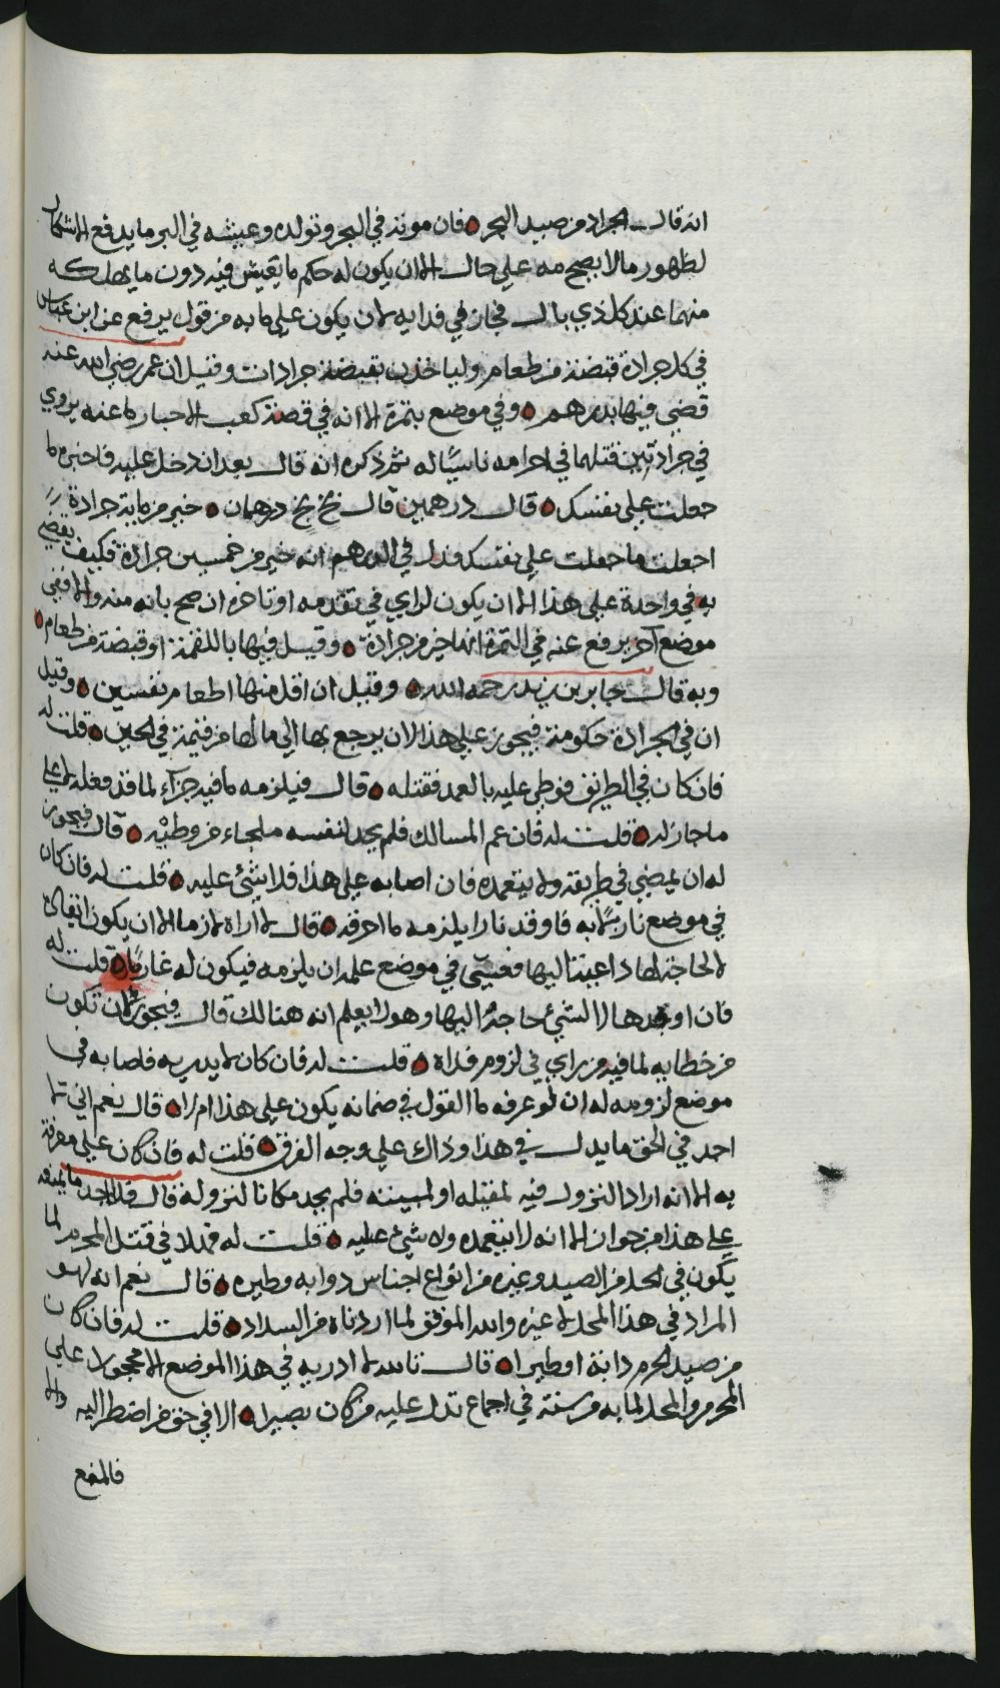 انه قال الجراد من صيد البحر فان موته في البحر وتولده وعيشه في البر ما يدفع الاشكال
لظهور ما لا يصح معه علي حال الا ان يكون له حكم ما يعيش فيه دون ما يهلكه
منهما عند كل ذي بال فجاز في فدايه لان يكون علي ما به من قول يرفع عن ابن عباس
في كل جرادة قبضة من طعام وليا خذن بقبضة جرادات وقيل ان عمر رضي الله عنه
قضي فيها بدرهم وفي موضع بتمرة الا انه في قصة كعب الاحبار ما عنه يروي
في جرادتين قتلهما في احرامه ناسيًا له ثم ذكره انه قال بعد ان دخل عليه فاخبره ما
جعلت علي نفسك قال درهمين قال بخ بخ درهمان خير من ماية جرادة
اجعل ما جعلت علي نفسك فدل في الدرهم انه خير من خمسين جرادة فكيف يقضي
به في واحدة علي هذا الا ان يكون لراي في تقدمه او تاخره ان صح بانه منه والا ففي
موضع آخر يرفع عنه في التمرة انها خير من جرادة وقيل فيها باللقمة او قبضة من طعام
وبه قال جابر بن زيد رحمه الله وقيل ان اقل منها اطعام نفسين وقيل
ان في الجرادة حكومة فيجوز علي هذا لان يرجع بها الي ما لها من قيمة في الحين قلت له
فان كان في الطريق فوطي عليه بالعمد فقتله قال فيلزمه ما فيه جزآء لما قد فعله لا علي
ما جاز له قلت له فان عم المسالك فلم يجد لنفسه ملجاء من وطئه قال فيجوز
له ان يمضي في طريقه ولا يتعمده فان اصابه علي هذا فلا شئ عليه قلت له فان كان
في موضع نار به فاوقد نارا يلزمه ما احرقه قال لا اراه لازما الا ان يكون
لا لحاجة لها داعية اليها فعسي في موضع علمه ان يلزمه فيكون له غارمًا قلت له
فان اوقدها لا لشئ حاجة اليها وهو لا يعلم انه هنالك قال فيجوز لان تكون
من خطايه لما فيه من راي في لزوم فداه قلت له فان كان لا يدريه فاصابه في
موضع لزومه له ان لو عرفه ما القول في ضمانه يكون علي هذا ام لا قال نعم اني لا
اجد في الحق ما يدل في هذا وذاك علي وجه الفرق قلت له فان كان علي معرفة
به الا انه اراد النزول فيه لمقيله او لمبيته فلم يجد مكانا لنزوله قال فلا اجد ما يمنعه
علي هذا من جوان الا انه لا يتعمده ولا شئ عليه قلت له فهذا في قتل المحرم لما
يكون في الحل من الصيد وغيره من انواع اجناس دوابه وطيره قال نعم انه لهو
المراد في هذا المحل لا غيره والله الموفق لما اردناه من السداد قلت له فان كان
من صيد الحرم دابة او طيرا قال تالله لا ادريه في هذا الموضع الا محجورا علي
المحرم والمحل لما به من سنة في اجماع تدل عليه من كان بصيرا الا في حق من اضطر اليه والا
فالمنع